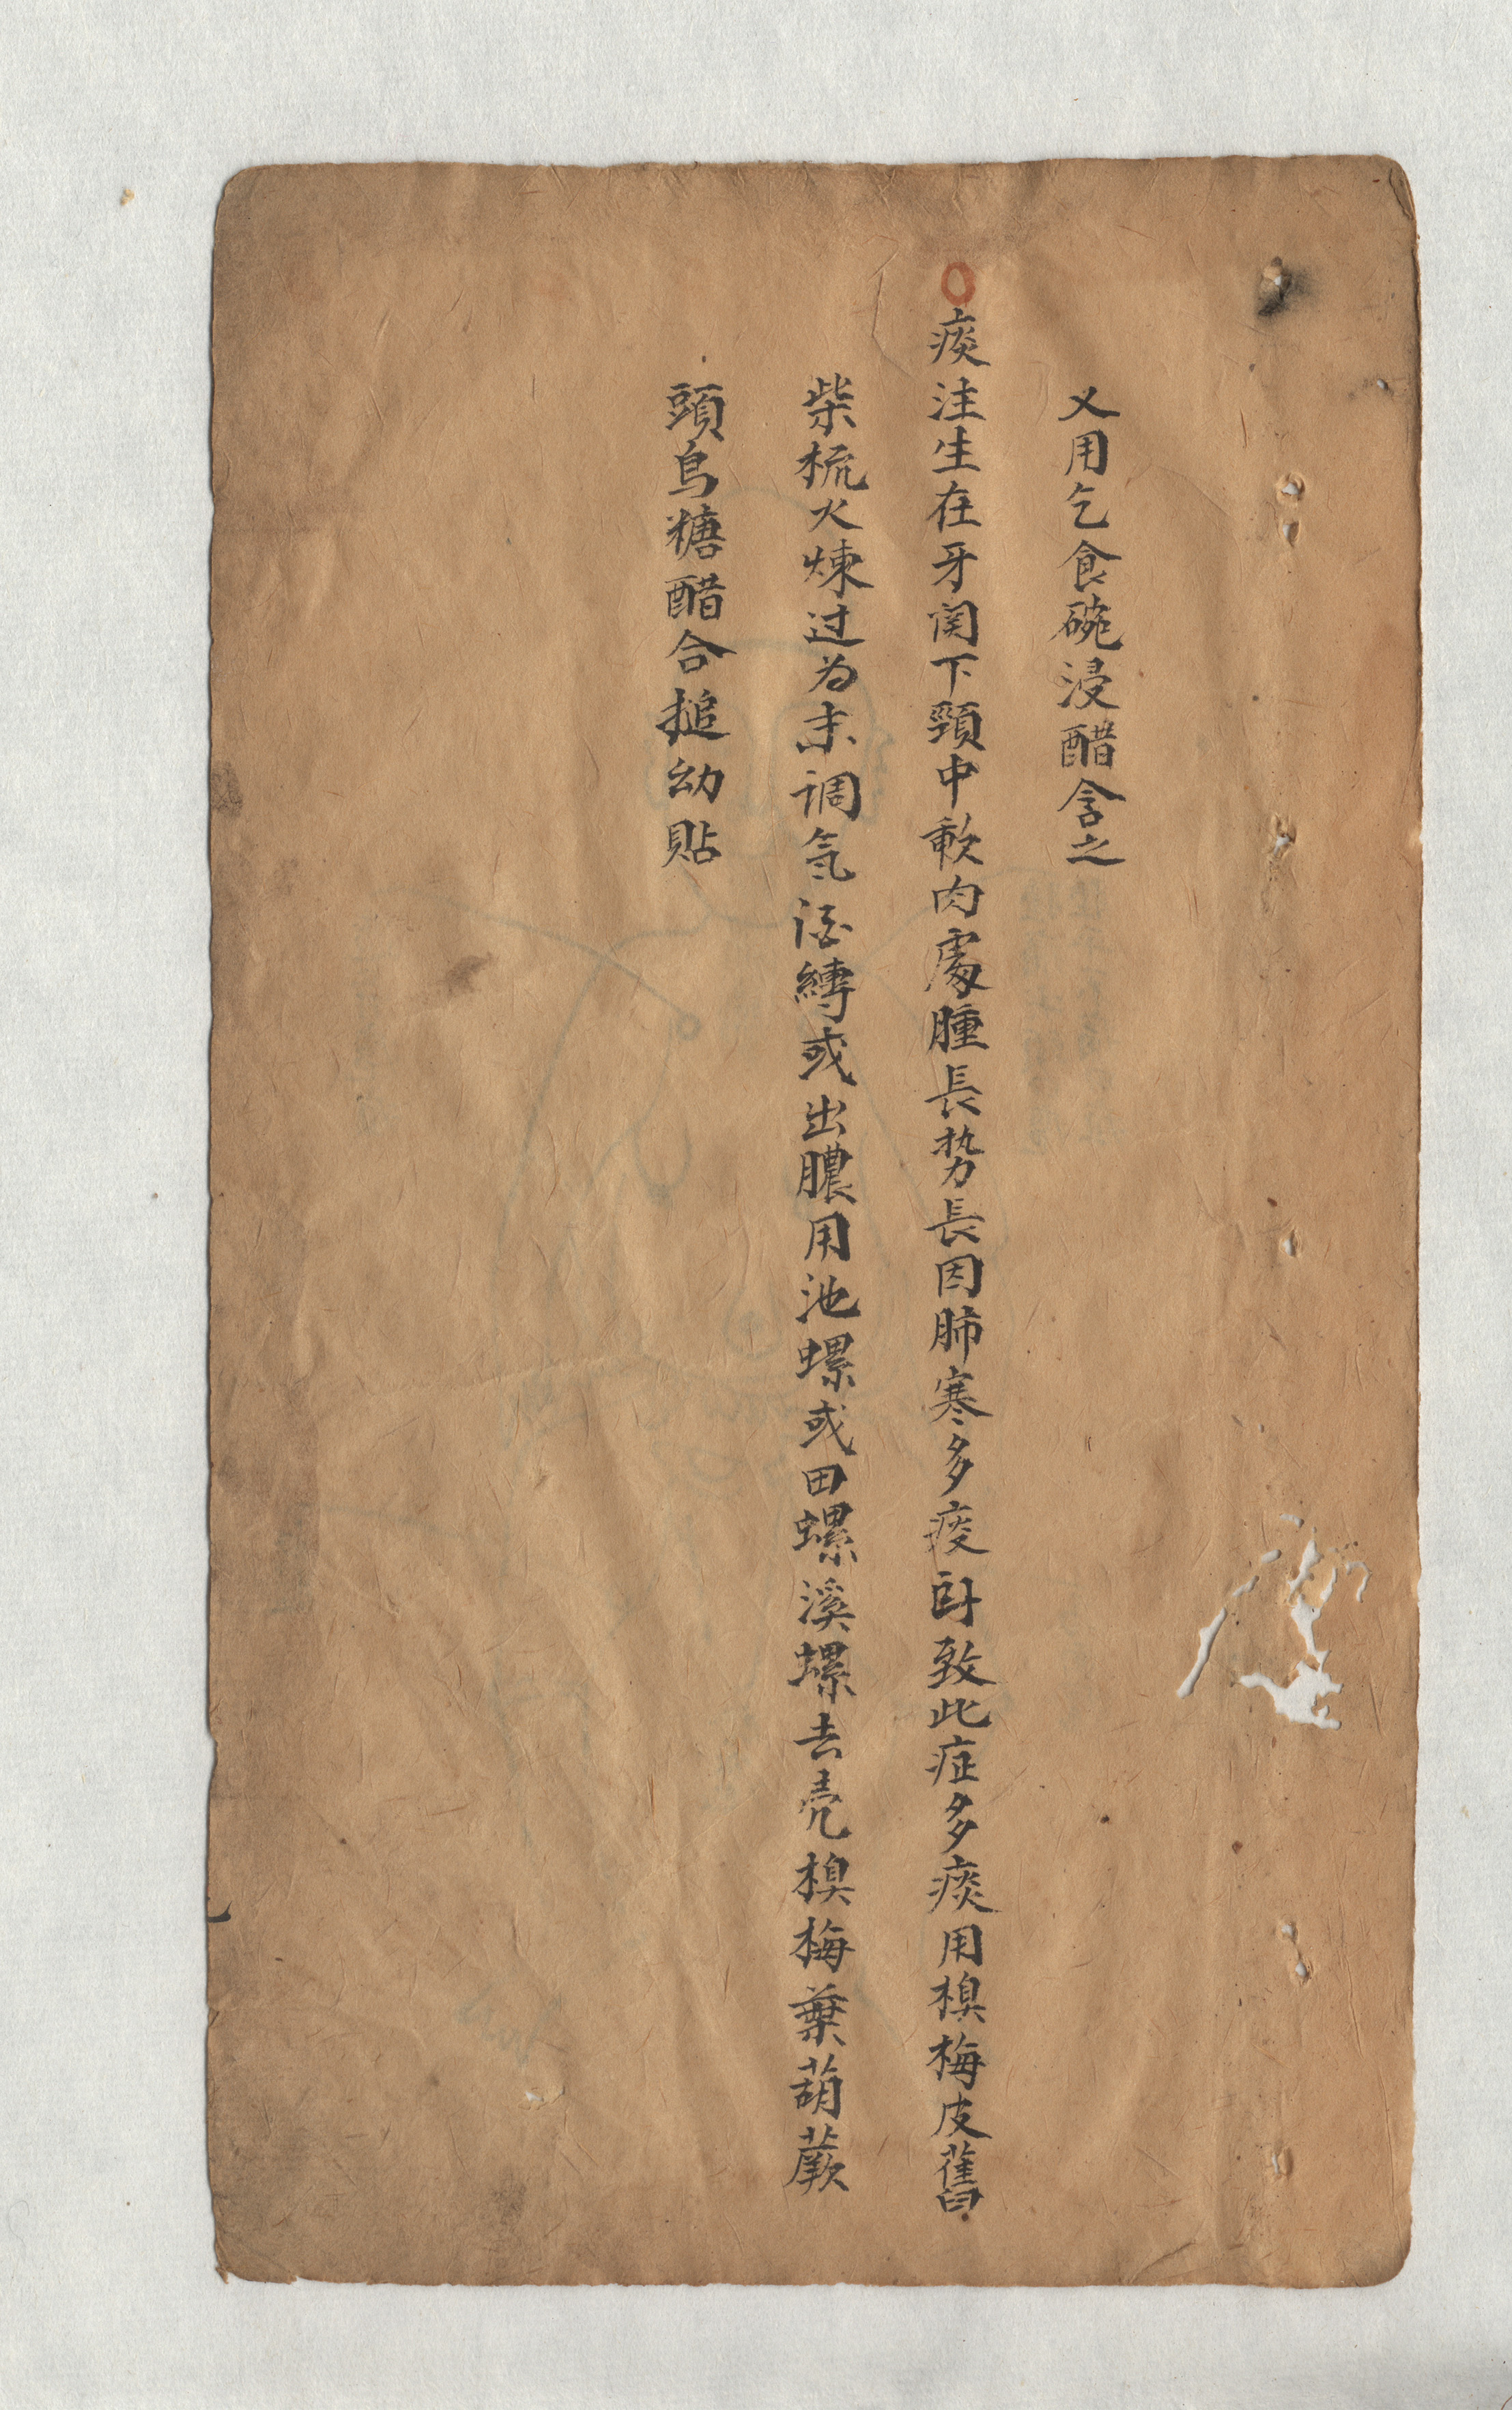 又用乞食碗浸醋含之
○痰注生在牙関下頸中軟肉處腫長势長因肺寒多痰卧致此症多痰用樌梅皮舊
柴梳火煉过为末调氛酒縛或出膿用池螺或田螺溪螺去壳樌梅葉葫蕨
頭烏糖醋合搥幼貼